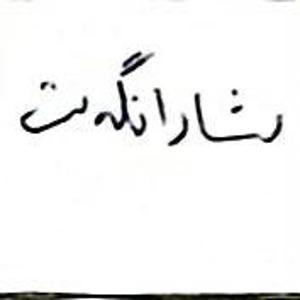 رشارانگەت